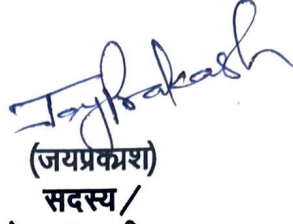 Jayprakash
(जयप्रकाश)
सदस्य /